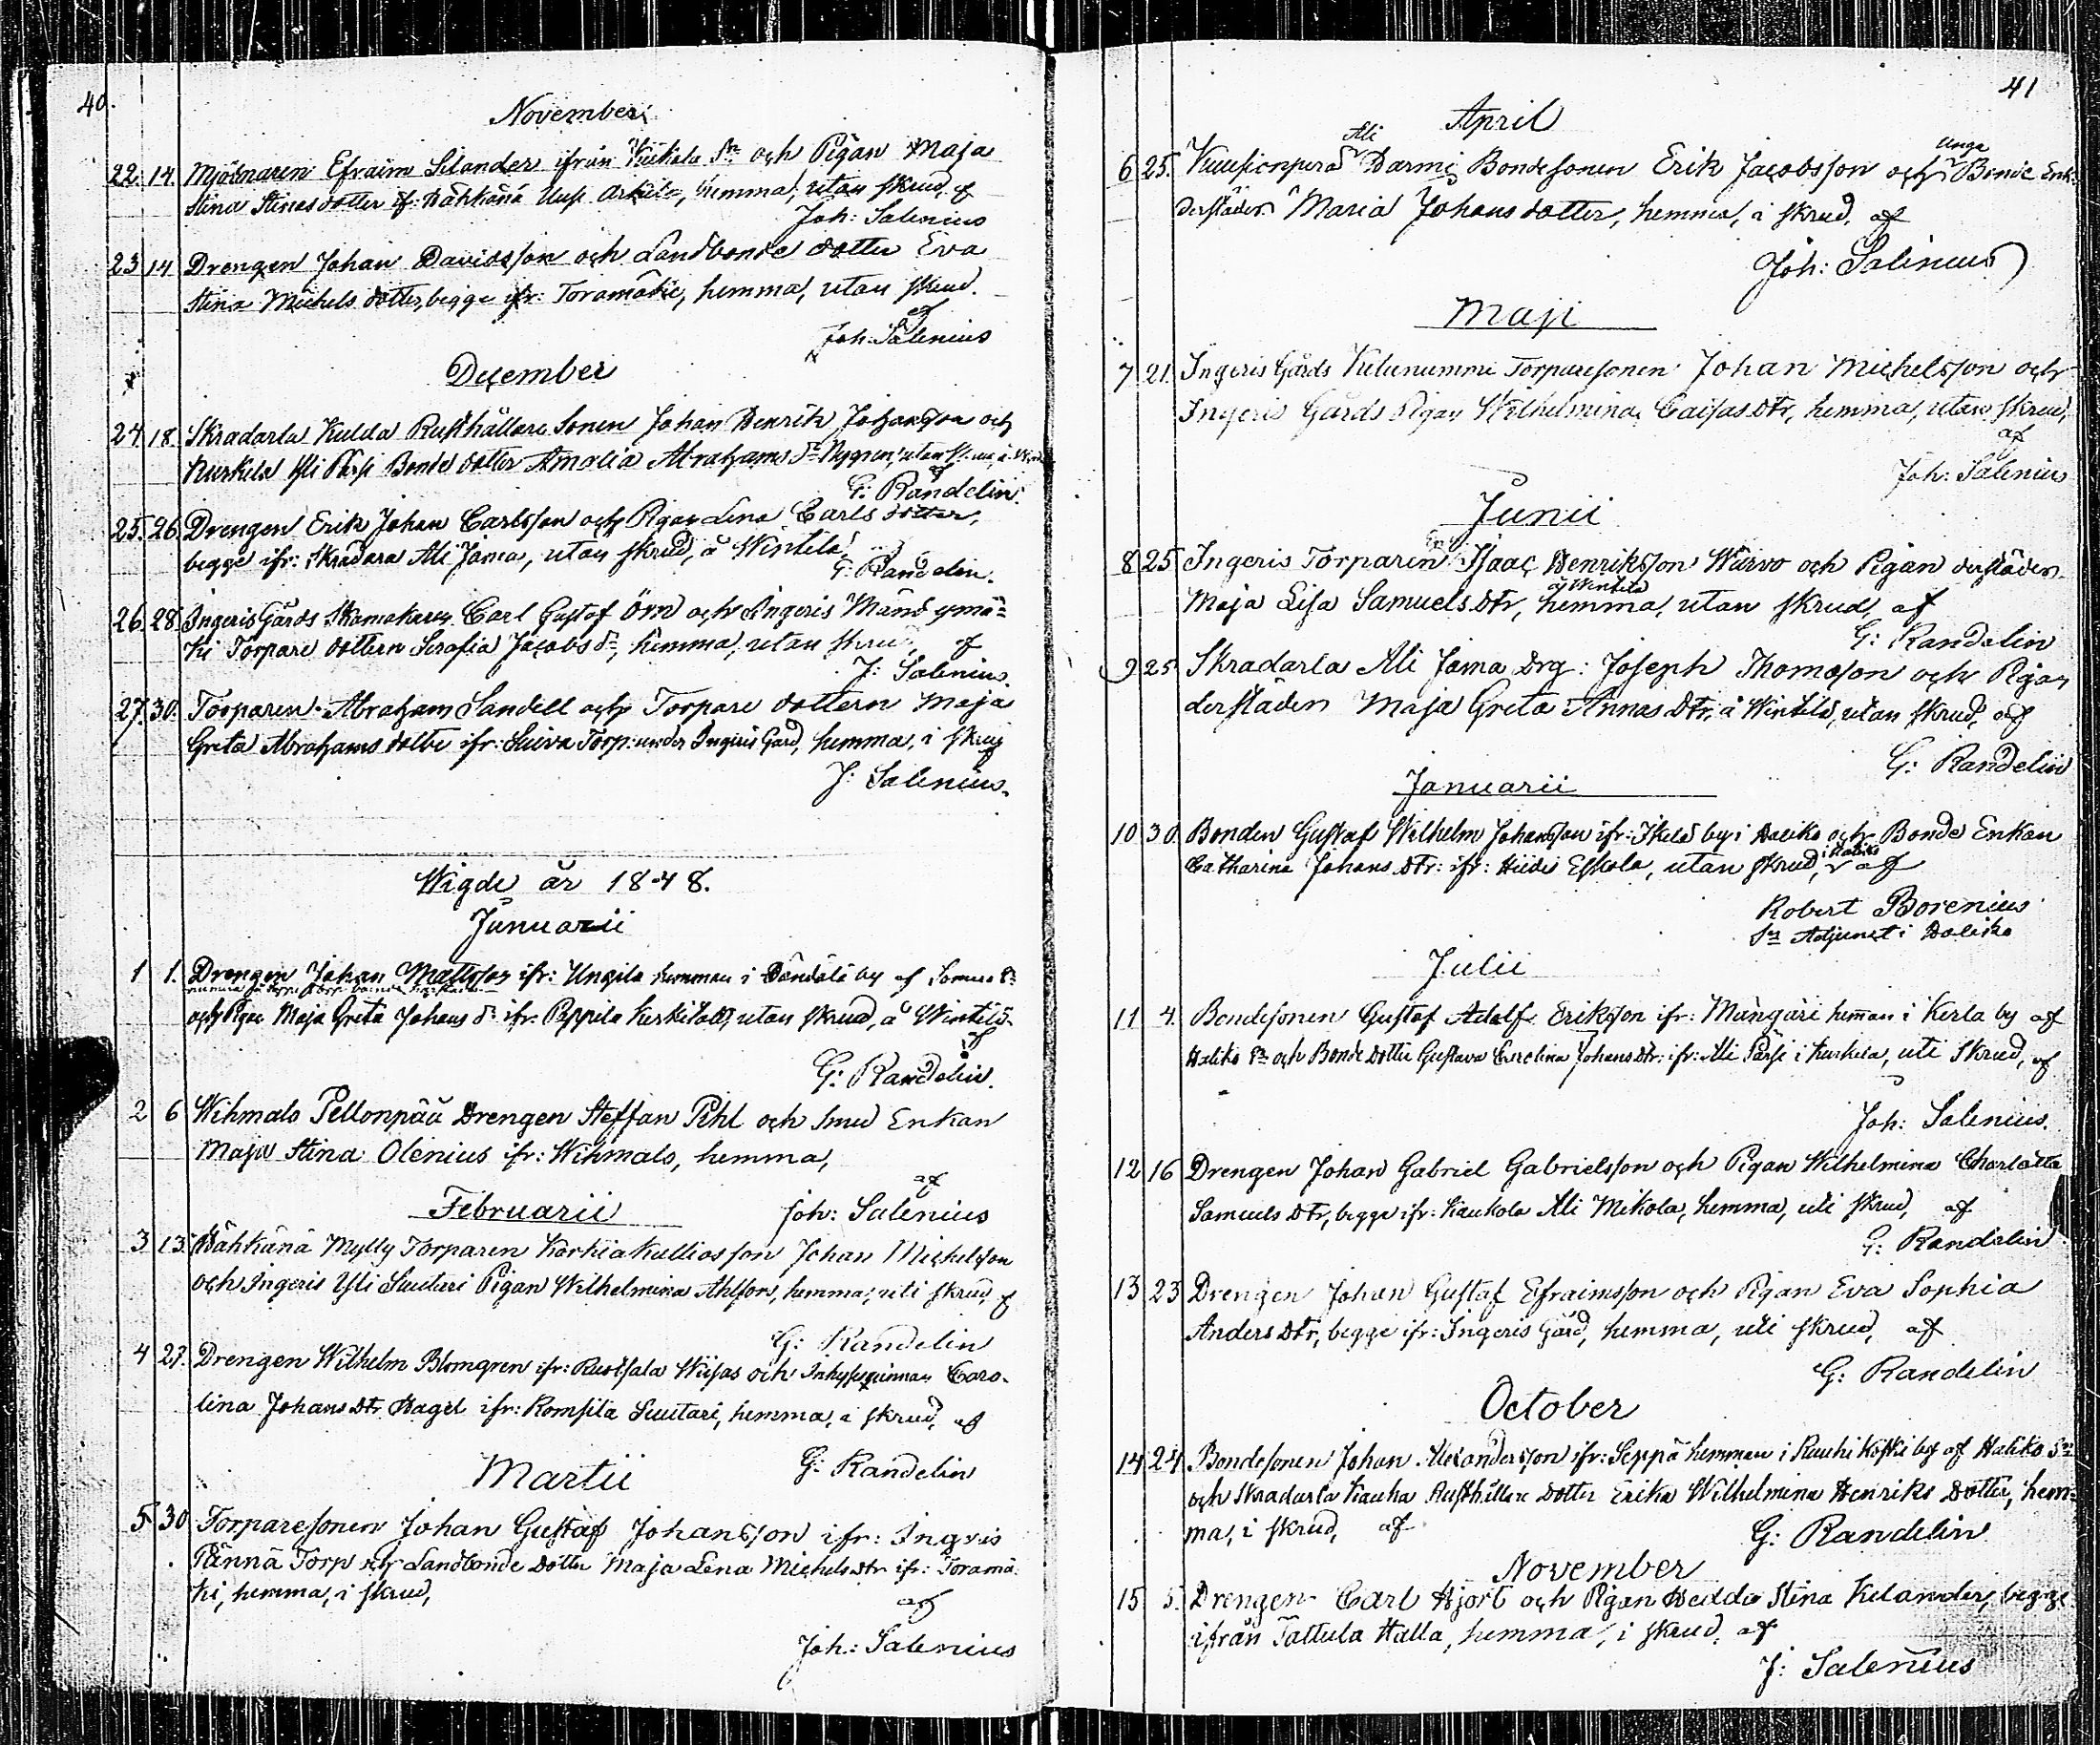 40.
November
22. 14. Mjölnaren Efraim Selander ifrån Kiikala Sn och Pigan Maja
Stina Stinas dotter if: Hähkänä hemma, utan skrud, af
Joh: Salenius
23 14 Drengen Johan Davidsson och Landbonde dotter Eva
Stina Michels dotter, begge ifr: Toramäki, hemma, utan skrud.
af
Joh: Salenius
December
24. 18. Skradarla Kulda Rusthållare Sonen Johan Henrik Johansson och
Kurkela Yli Pärsi Bonde dotter Amalia Abrahams dr Nygren, utan
G: Randelin.
25. 26. Drengen Erik Johan Carlsson och Pigan Lena Carls dotter,
begge ifr: Skradarla Ali Jama, utan skrud, å Wintila
G: Randelin.
26. 28. Ingeris Gårds Skomakaren Carl Gustaf Örn och Ingeris Mändymä-
ki Torpare dottern Serafia Jacobs dr, hemma, utan skrud, af
J: Salenius.
27. 30. Torparen Abraham Sandell och Torpare dottern Maja
Greta Abrahams dotter ifr: Torp under Ingeris Gård, hemma, i skrud
J: Salenius.
Wigde år 1848.
Januarii
1 1. Drengen Johan Mattsson ifr: Ungila hemman i by af Somero Sn
och Pigan Maja Greta Johans dr ifr. Pappila utan skrud, å Wintilä
af
G: Randelin.
2 6 Wihmalo Pellonpää Drengen Steffan Pihl och Smed Enkan
Maja Stina Olenius ifr: Wihmalo, hemma,
af
Februarii Joh: Salenius
3 13. Hähkänä Mylly Torparen Johan Michelsson
och Ingeris Yli Suutari Pigan Wilhelmina Ahlfors, hemma, uti skrud, af
G: Randelin
4 27. Drengen Wilhelm Blomqren ifr: Ruotsala Wiisas och Inhyses qvinnan Caro-
lina Johans Dtr Hagel ifr: Romsila Suutari, hemma, i skrud, af
G: Randelin
Martii
5 30 Torparesonen Johan Gustaf Johansson ifr: Ingeris
Pännä Torp och Landbonde Dotter Maja Lena Michels Dtr ifr: Toramä-
ki, hemma, i skrud,
af
Joh: Salenius
41
April
6 25. Kuusjonperä Ali Darmi Bondesonen Erik Jacobsson och unga Bonde Enk:
derstädes Maria Johans dotter, hemma, i skrud, af
Joh: Salenius
Maji
7 21. Ingeris Gårds Ketunummi Torparesonen Johan Michelsson och
Ingeris Gårds Pigan Wilhelmina Caisas Dtr, hemma, utan skrud,
af
Joh: Salenius
Junii
8 25 Ingeris Torparen Isaac Henriksson Warvo och Pigan derstädes
å Wintilä
Maja Lisa Samuels Dtr, hemma, utan skrud, af
G: Randelin
9 25 Skradarla Ali Jama Drg: Joseph Thomasson och Pigan
derstädes Maja Greta Annas Dtr, å Wintilä, utan skrud, af
G: Randelin
Januarii
10 30. Bonden Gustaf Wilhelm Johansson ifr: Ikelä by i Haliko och Bonde Enkan
Catharina Johans Dtr: ifr: Hiidis Eskola, utan skrud, i Haliko af
Robert Borenius
Sn Adjunct i Haliko
Julii
11 4. Bondesonen Gustaf Adolf Eriksson ifr: Mangäri hemman i Kerla by af
Haliko Sn och Bonde Dotter Gustava Carolina Johans Dtr: ifr: Ali Pärsi i Kurkela, uti Skrud, af
Joh: Salenius.
12 16 Drengen Johan Gabriel Gabrielsson och Pigan Wilhelmina Charlotta
Samuels Dtr, begge ifr: Kaukola Ali Mikola, hemma, uti skrud, af
G: Randelin
13 23 Drengen Johan Gustaf Efraimsson och Pigan Eva Sophia
Anders Dtr, begge ifr: Ingeris Gård, hemma, uti skrud, af
G: Randelin
October
14 24 Bondesonen Johan Alexandersson ifr: Seppä hemman i Rauhikoski by af Haliko Sn
och Skradarla Kauha Rusthållare Dotter Erika Wilhelmina Henriks Dotter, hem-
ma, i skrud, af
G: Randelin
November
15 5. Drengen Carl Hjort och Pigan Hedda Stina Kelander, begge
ifrån Tattula Halla, hemma, i skrud, af
J: Salenius